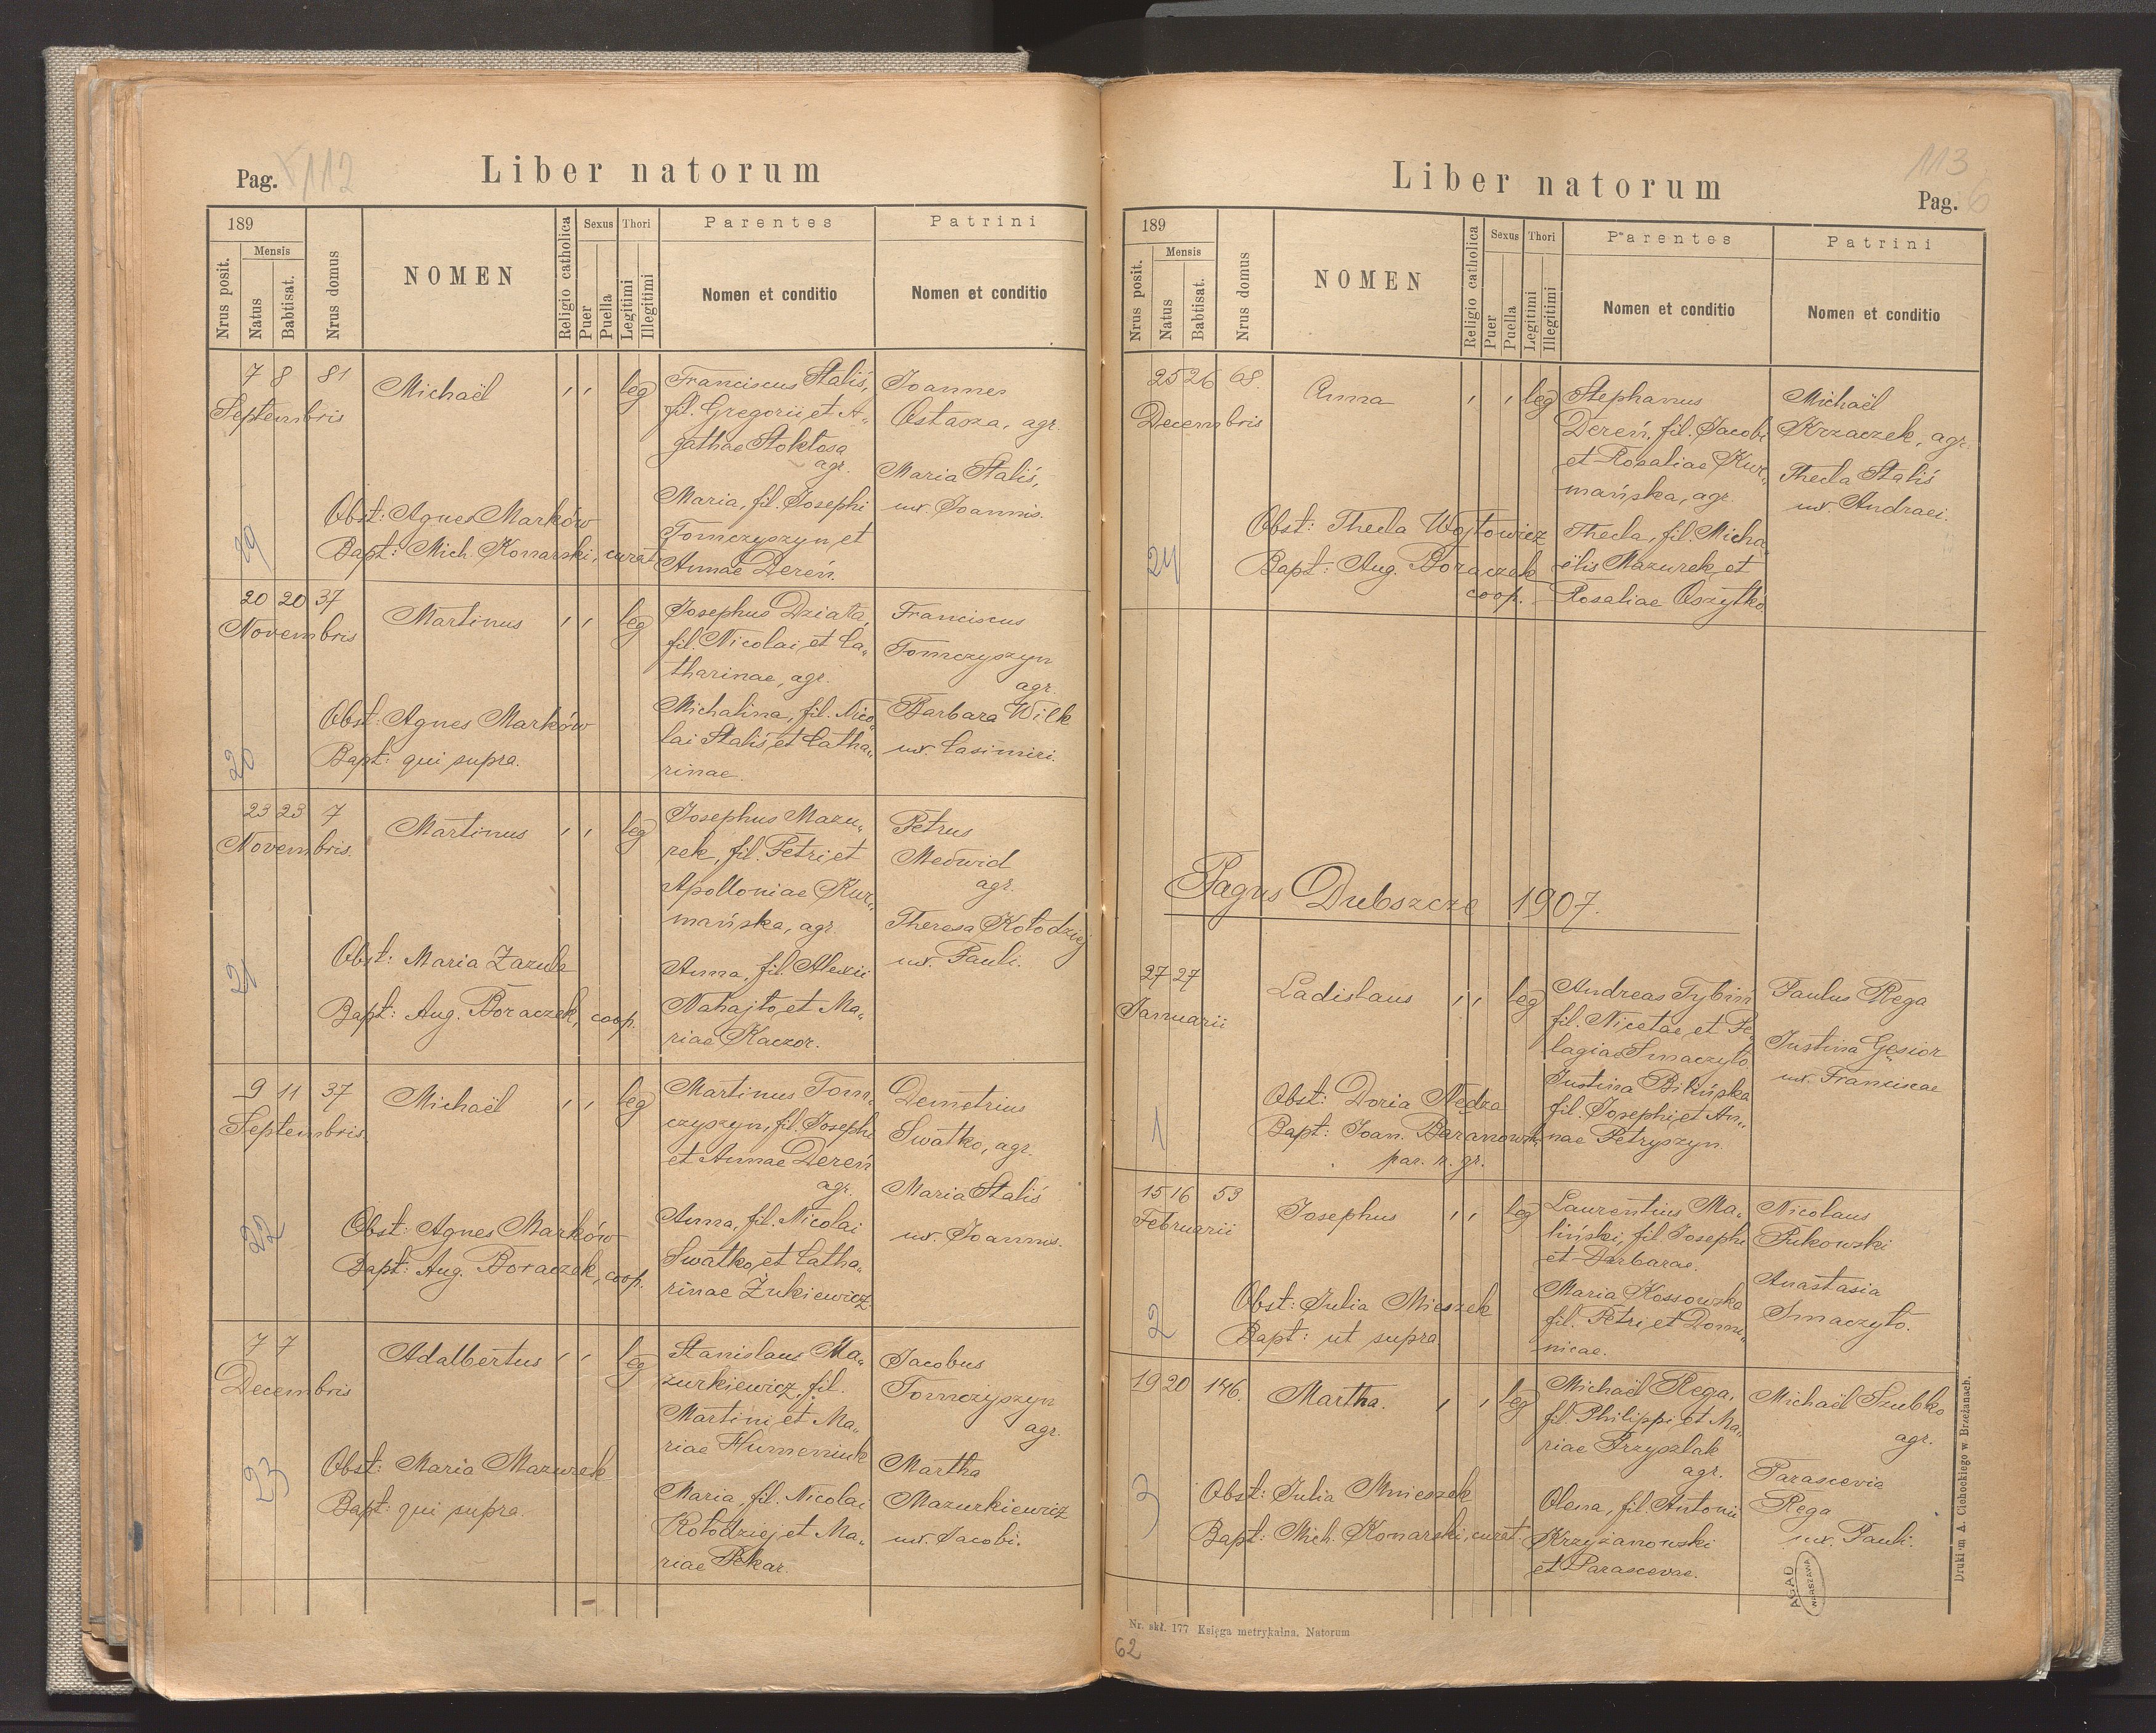 Pag. 112
Liber natorum
189
Nrus posit.
Mensis
Natus
Babtisat.
Nrus domus
NOMEN
Religio catholica
Sexus
Puer
Puella
Thori
Legitimi
Illegitimi
Parentes
Nomen et conditio
Patrini
Nomen et conditio
7 8 81
Septembris
Michaël
leg
Franciscus Staliś,
fil. Gregorii et A„
gathae Stokłosa
agr.
Maria, fil. Josephi
Tomczyszyn et
Annae Dereń.
Joannes
Ostasza, agr.
Maria Staliś,
ux. Joannis.
Obst: Agnes Marków
Bapt: Mich. Konarski, curat
19
20 20 37
Novembris
Martinus
leg
Josephus Działa,
fil. Nicolai et Ca„
tharinae, agr.
Michalina, fil. Nico„
lai Staliś et Catha„
rinae.
Franciscus
Tomczyszyn
agr.
Barbara Wilk
ux. Casimiri.
Obst: Agnes Marków
Bapt: qui supra.
20
23 23 7
Novembris.
Martinus
leg
Josephus Mazu„
rek, fil. Petri et
Apolloniae Kur„
mańska, agr.
Anna, fil. Alexii
Nahajło et Ma„
riae Kaczor.
Petrus
Medwid
agr.
Theresa Kołodziej
ux. Pauli.
Obst: Maria Zazula
Bapt: Aug. Boraczek, coop.
21
9 11 37
Septembris.
Michaël
leg
Martinus Tom„
czyszyn, fil. Josephi
et Annae Dereń
agr.
Anna, fil. Nicolai
Swatko et Catha„
rinae Żukiewicz.
Demetrius
Swatko, agr.
Maria Staliś
ux. Joannis.
Obst: Agnes Marków
Bapt: Aug. Boraczek, coop.
22
7 7
Decembris
Adalbertus
leg
Stanislaus Ma„
zurkiewicz, fil.
Martini et Ma„
riae Humeniuk
Maria, fil. Nicolai
Kołodziej et Ma„
riae Pekar.
Jacobus
Tomczyszyn
agr.
Martha
Mazurkiewicz
ux. Jacobi.
Obst: Maria Mazurek
Bapt: qui supra.
23
Liber natorum
113
Pag. 6
189
Nrus posit.
Mensis
Natus
Babtisat.
Nrus domus
NOMEN
Religio catholica
Sexus
Puer
Puella
Thori
Legitimi
Illegitimi
Parentes
Nomen et conditio
Patrini
Nomen et conditio
25 26 68.
Decembris
Anna
leg
Stephanus
Dereń, fil. Jacobi
et Rosaliae Kur„
mańska, agr.
Thecla, fil. Micha„
ëlis Mazurek et
Rosaliae Oszytko
Michaël
Krzaczek, agr.
Thecla Staliś
ux. Andraei.
Obst: Thecla Wojtowicz
Bapt: Aug. Boraczek
coop.
24
Pagus Dubszcze 1907.
27 27
Januarii
Ladislaus
leg
Andreas Tybiń
fil. Nicetae et Pe„
lagiae Smaczyło
Justina Bilińska
fil. Josephi et An„
nae Petryszyn.
Paulus Rega
Justina Gęsior
ux. Franciscae
Obst: Doria Nędza
Bapt: Joan. Baranowski
par. r. gr.
1
15 16 53
Februarii
Josephus
leg
Laurentius Ma„
liński, fil. Josephi
et Barbarae.
Maria Kossowska
fil. Petri et Domi„
nicae.
Nicolaus
Pukowski
Anastasia
Smaczyło.
Obst: Julia Mieszek
Bapt: ut supra
2
19 20 146.
Martha.
leg
Michaël Rega,
fil. Philippi et Ma„
riae Przyszlak
agr.
Olena, fil. Antonii
Krzyżanowski
et Parascevae.
Michaël Szubko
agr.
Parascevia
Rega
ux. Pauli.
Obst: Julia Mnieszek
Bapt: Mich. Konarski, curat.
3
AGAD
WARSZAWA
Drukiem A. Cichockiego w Brzeżanach.
Nr. skł. 177 Księga metrykalna. Natorum
62